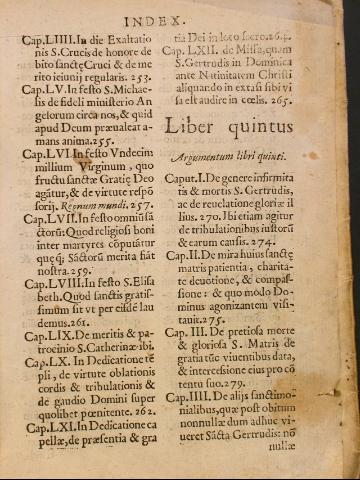 INDEX.
Cap.LIIII. In die Exaltatio
nis S.Crucis de honore de
bito sanctę Cruci & de me
rito ieiunij regularis. 253.
Cap.LV. In festo S.Michae-
lis de fideli ministerio An
gelorum circa nos, & quid
apud Deum præualeat a-
mans anima.255.
Cap.LVI. In festo Vndecim
millium Virginum , quo
fructu sanctæ Gratię Deo
agātur, & de virtute respō
sorij. Regnum mundi. 257.
Cap.LVII. In festo omniū sā
ctorū: Quod religiosi boni
inter martyres cōputātur
quę q; Sāctorū merita fiāt
nostra.259.
Cap.LVIII. In festo S.Elisa
beth. Quod sanctis gratis-
simum sit vt per eisdē lau
demus.261.
Cap.LIX. De meritis & pa-
trocinio S.Catherinæ.ibi.
Cap.LX. In Dedicatione tē
pli, de virtute oblationis
cordis & tribulationis &
de gaudio Domini super
quolibet pœnitente. 262.
Cap.LXI. In Dedicatione ca
pellæ, de præsentia & gra
tia Dei in loto sacro.264.
Cap. LXII. de Missa, quam
S.Gertrudis in Dominica
ante Natiuitatem Christi
aliquando in extasi sibi vi
sa est audire in cœlis. 265.
Liber quintus
Argumentum libri quinti.
Caput.I. De genere infirmita
tis & mortis S. Gertrudis,
ac de reuelatione gloriæ il
lius. 270. Ibi etiam agitur
de tribulationibus iustorū
& earum causis. 274.
Cap.II. De mira huius sanctę
matris patientia , charita-
te deuotione, & compas-
sione : & quo modo Do-
minus agonizantem visi-
tauit.275.
Cap. III. De pretiosa morte
& gloriosa S. Matris de
gratiatūc viuentibus data,
& intercessione eius pro cō
tentu suo.279.
Cap.IIII. De alijs sanctimo-
nialibus, quæ post obitum
nonnullæ dum adhuc vi-
ueret Sācta Gertrudis: nō
nullæ